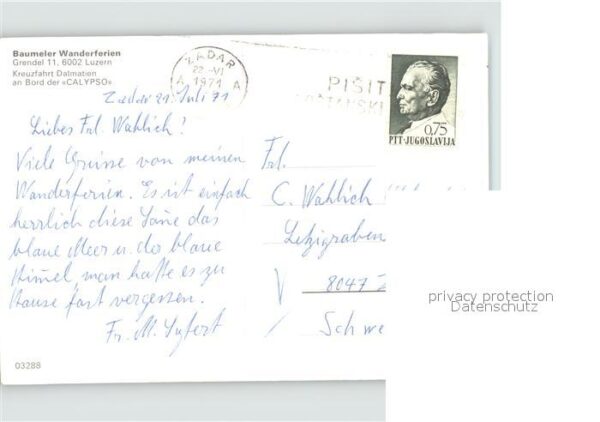 Baumeler Wanderferien
Grendel 11, 6002 Luzern
Kreuzfahrt Dalmatien
an Bord der «CALYPSO»
ZADAR
22.-VI
1971
A A
PIŠIT
POŠTANSKI
0,75
PTT·JUGOSLAVIJA
Zadar 21. Juli 71
Liebes Frl. Wahlich!
Viele Grüsse von meinen
Wanderferien. Es ist einfach
herrlich diese Sone das
blaue Meer u. der blaue
Himel, man hatte es zu
Hause fast vergessen.
Fr. M.
Frl.
C. Wahlich
Letzigraben
8047 Z
Schwe
03288
privacy protection
Datenschutz